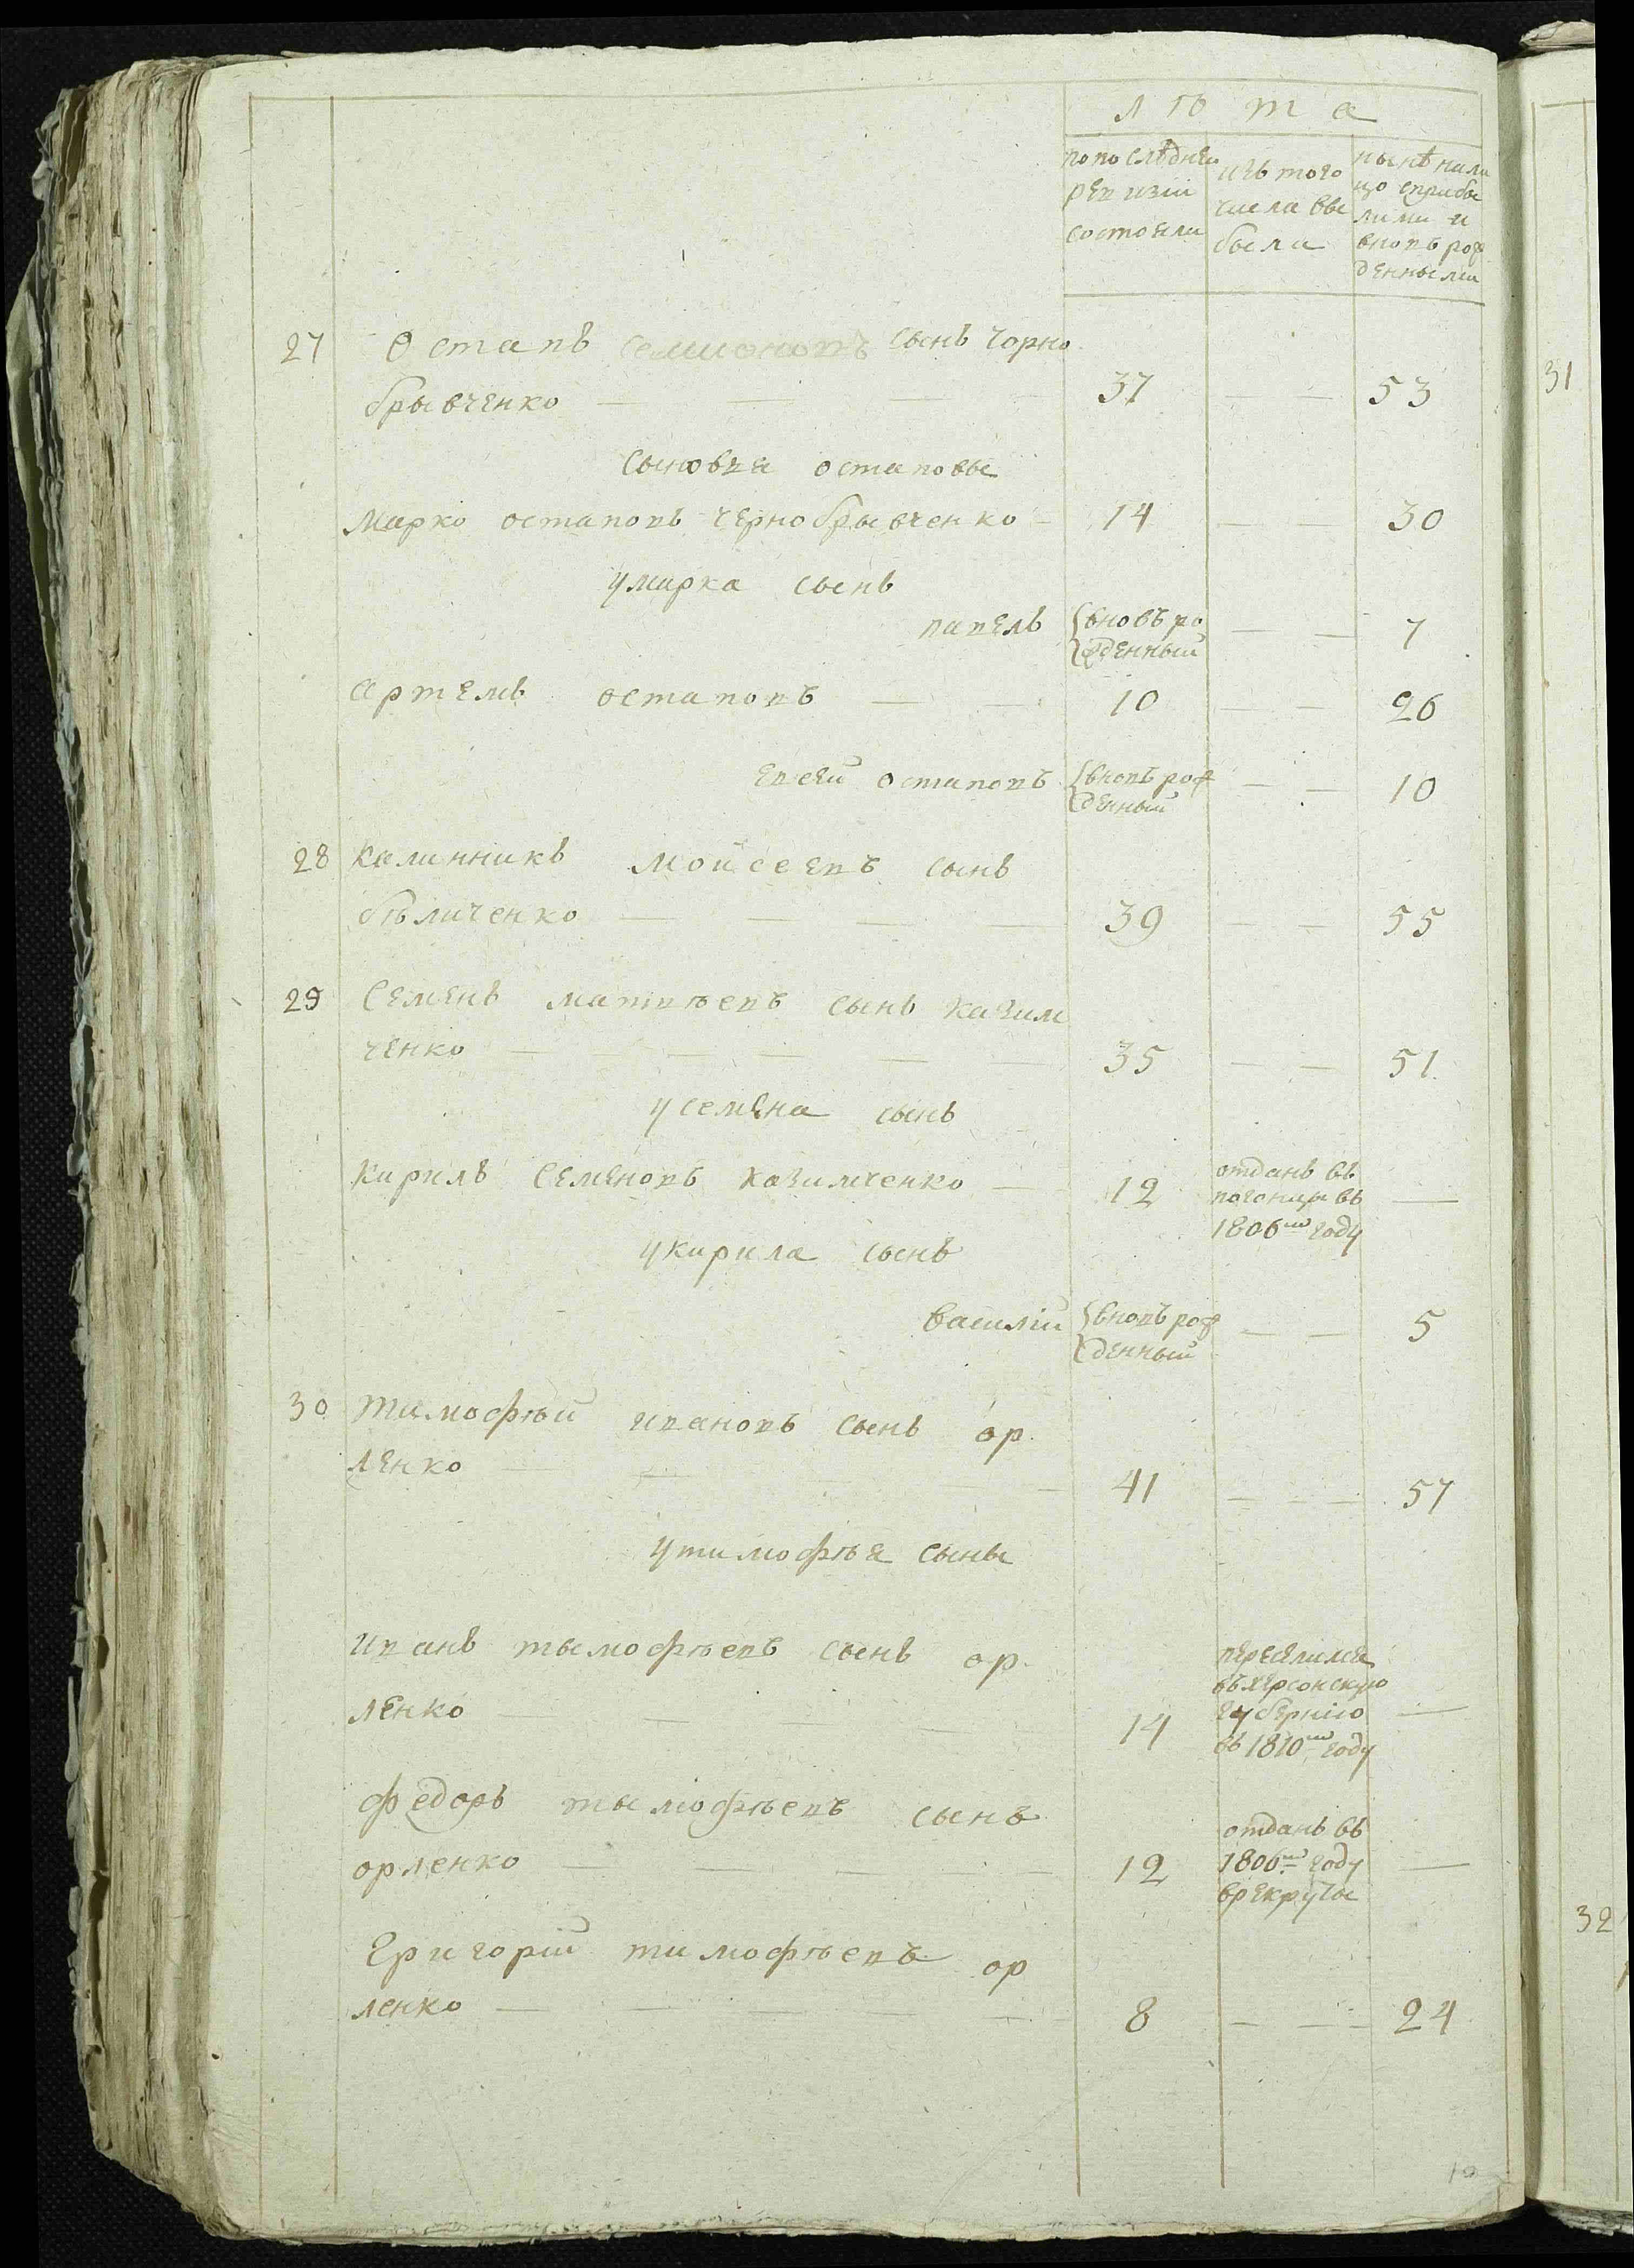 лѣта
попослѣднеи
ревизіи
состояли
изъ того
числа вы
были
нынѣ нали
цо сприбы
лыми и
вновь рож
денными
27 Остапъ семионовъ сынъ чорно
брывченко — — 37 — — 53
сыновья остаповы
Марко остаповъ чернобрывченко — 14 — — 30
умарка сынъ
павелъ вновъ ро
жденный — — 7
артемъ остаповъ — — 10 — — 26
евсей остаповъ вновъ рож
денный — — 10
28 калинникъ мойсеевъ сынъ
бѣличенко — — — — 39 — — 55
29 Семенъ матвѣевъ сынъ казим
ченко — — — — — — 35 — — 51
усемена сынъ
Кирилъ Семеновъ казимченко — 12 отданъ въ
погонцы въ —
1806м году
укирила сынъ
василій вновъ рож
денный — — 5
30 тимофѣй ивановъ сынъ ор
ленко — — — — 41 — — — 57
утимофѣя сыны
иванъ тымофѣевъ сынъ ор
ленко — — — — 14 переселился
въ херсонскую
губернію —
въ 1810м году
федоръ тымофѣевъ сынъ
орленко — — — — 12 отданъ въ
1806м году —
врекруты
Григорій тимофѣевъ ор
ленко — — — — 8 — — — 24
10
31
32